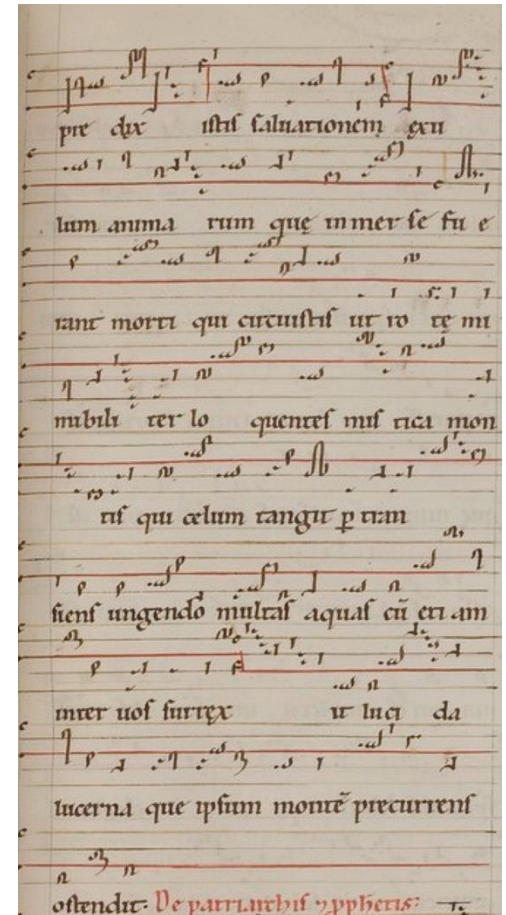 pre dix istis saluationem exu
lum anima rum quę inmer se fu e
rant morti qui circuistis ut ro tę mi
rabili ter lo quentes mis tica mon
tis qui celum tangit ꝑ tran
siens ungendo multas aquas cū eti am
inter uos surrex it luci da
lucerna que ipsum montē precurrens
ostendit· De patriarchis ⁊ ꝓphetis: